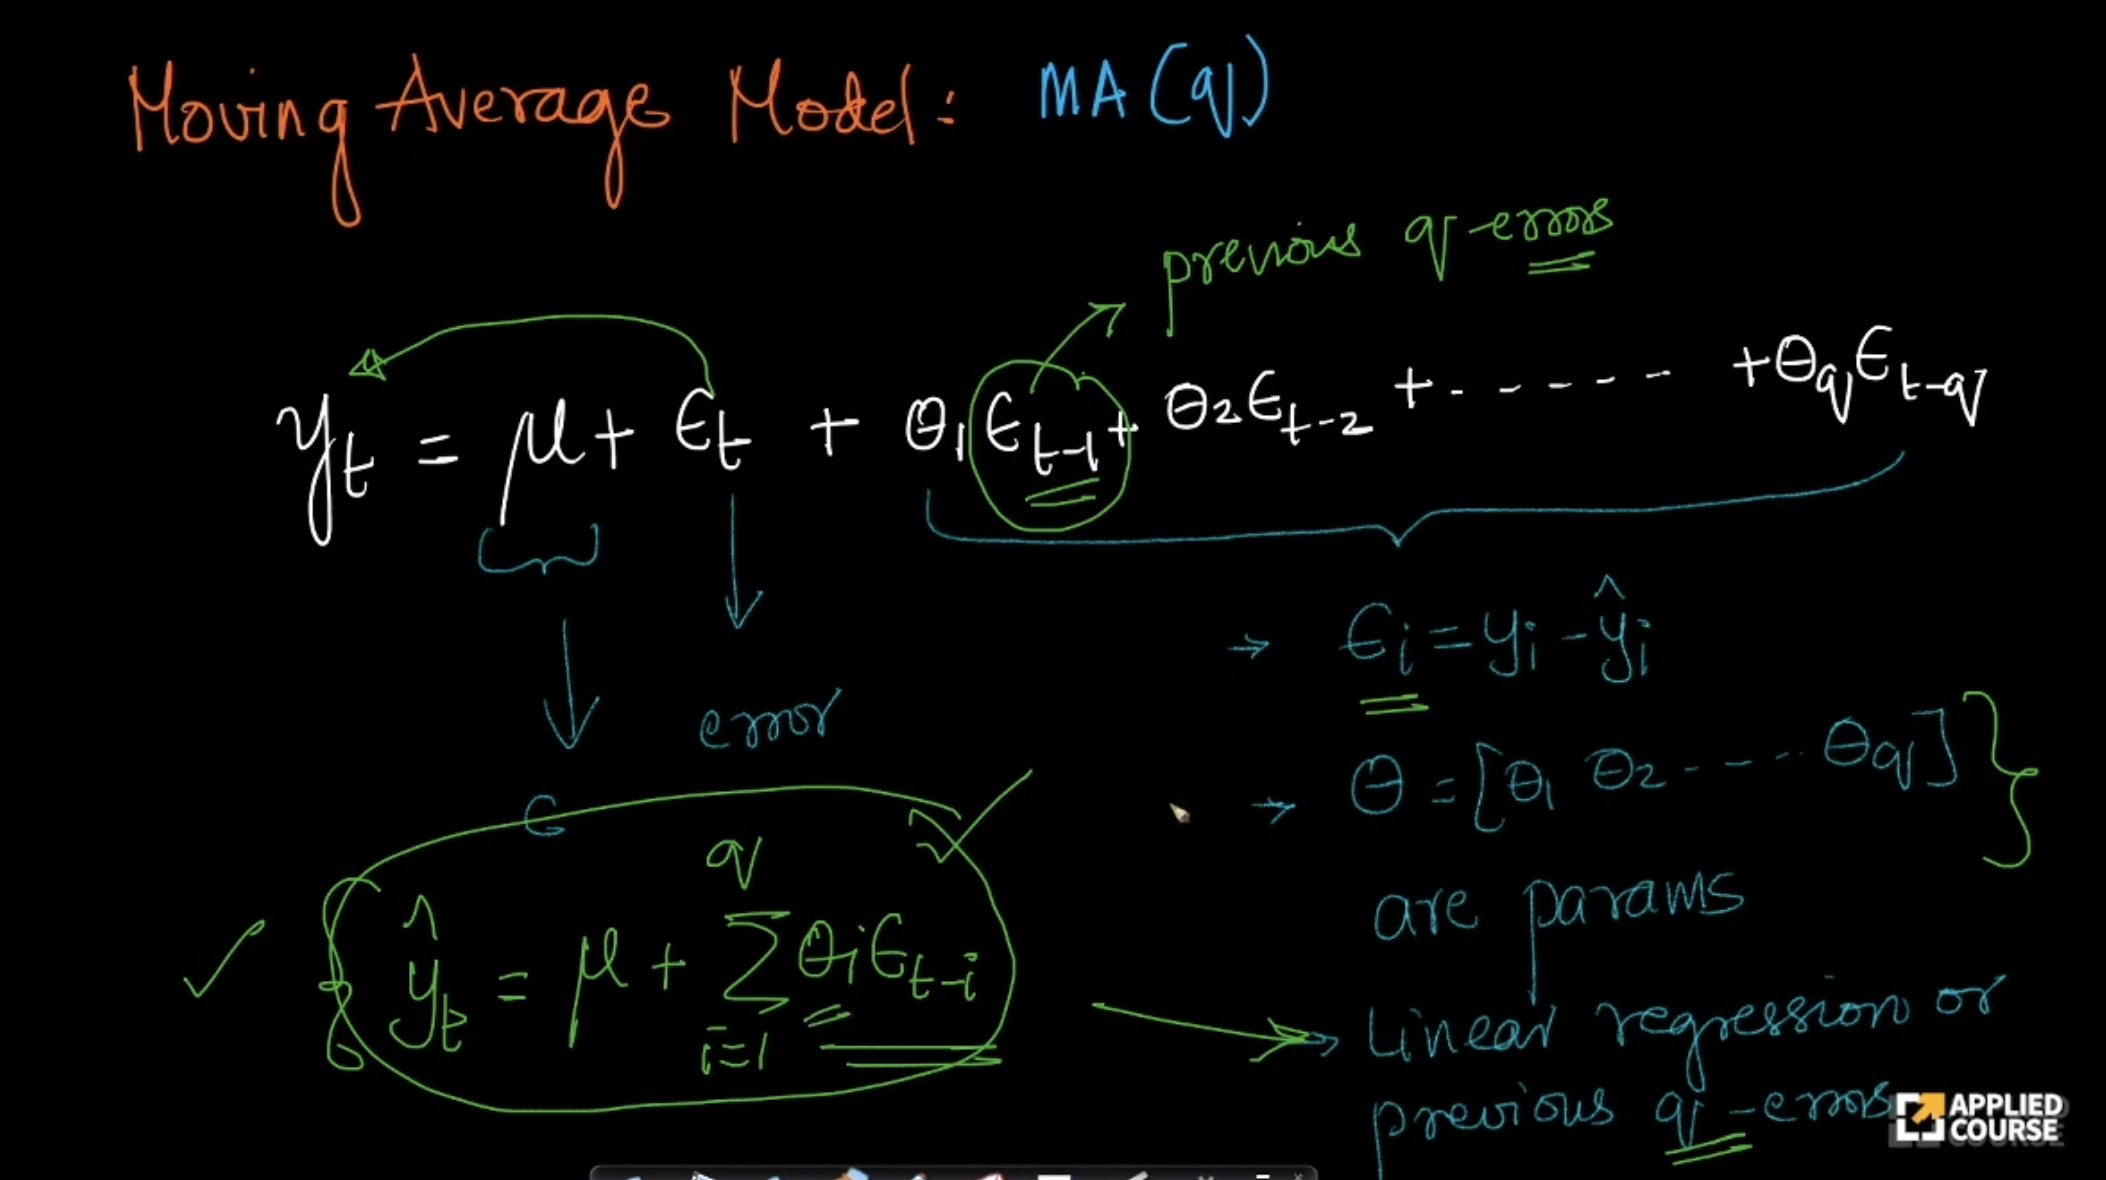 Moving Average Model: MA(q)
previous q-errors
yt = μ + ϵt + θ1ϵt-1 + θ2ϵt-2 + ------ + θqϵt-q
ϵi = yi - ŷi
error
θ = [θ1 θ2 ---- θq]
C
are params
ŷt = μ + Σ(i=1 to q) θiϵt-i
Linear regression or
previous q-errors
APPLIED
COURSE